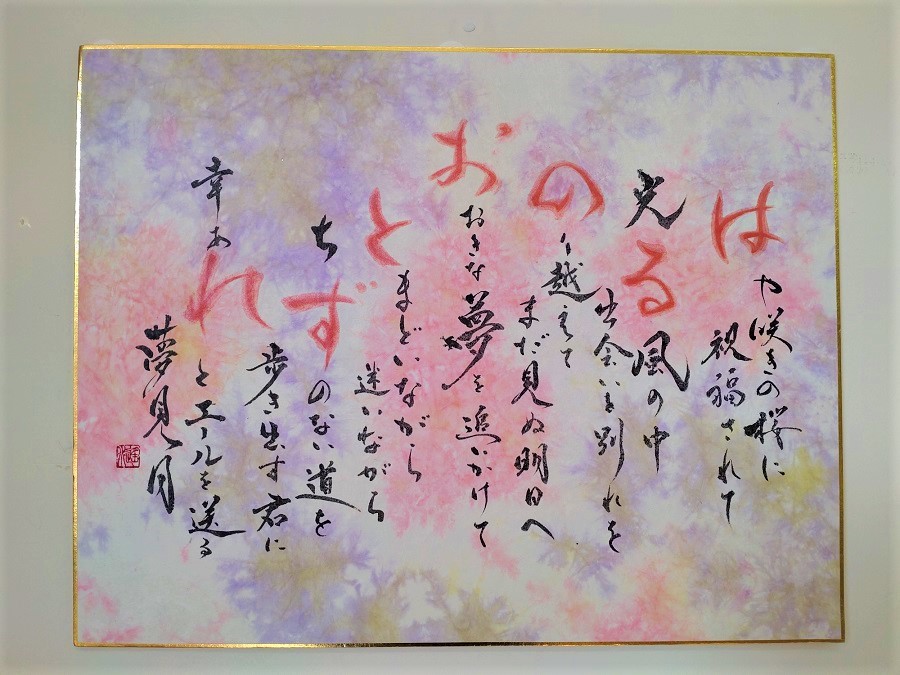 はや咲きの桜に
祝福されて
光る風の中
出会いと別れを
のり越えて
まだ見ぬ明日へ
おおきな夢を追いかけて
とまどいながら
迷いながら
ちずのない道を
歩き出す君に
幸あれ
とエールを送る
夢見月